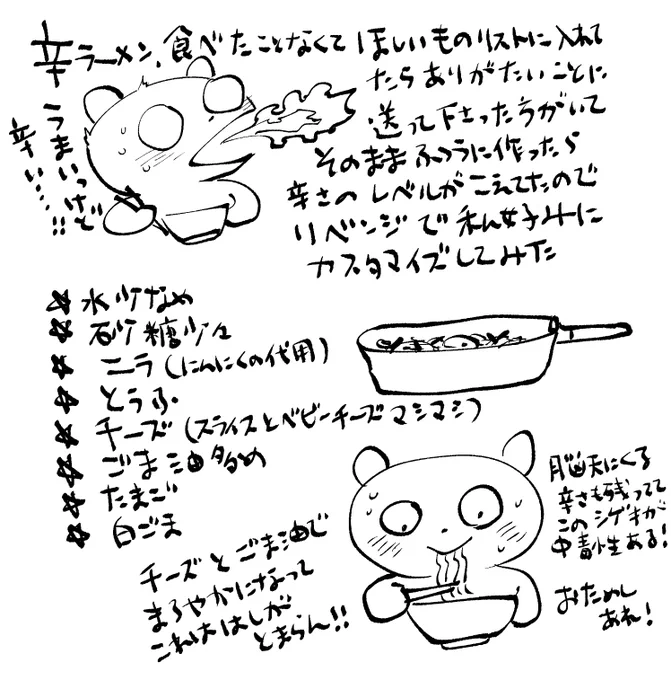 辛ラーメン、食べたことなくて ほしいものリストに入れて
たらありがたいことに
送って下さった方がいて
そのまま ふつうに作ったら
辛さの レベルが こえてたので
リベンジで 私好みに
カスタマイズしてみた
うまいっけど
辛い…!!
☆ 水少なめ
☆ 砂糖少々
☆ ニラ(にんにくの代用)
☆ とうふ
☆ チーズ(スライスとベビーチーズ マシマシ)
☆ ごま油多め
☆ たまご
☆ 白ごま
チーズとごま油で
まろやかになって
これははしが
とまらん!!
脳天にくる
辛さも残ってて
このシゲキが
中毒性ある!
おためし
あれ!